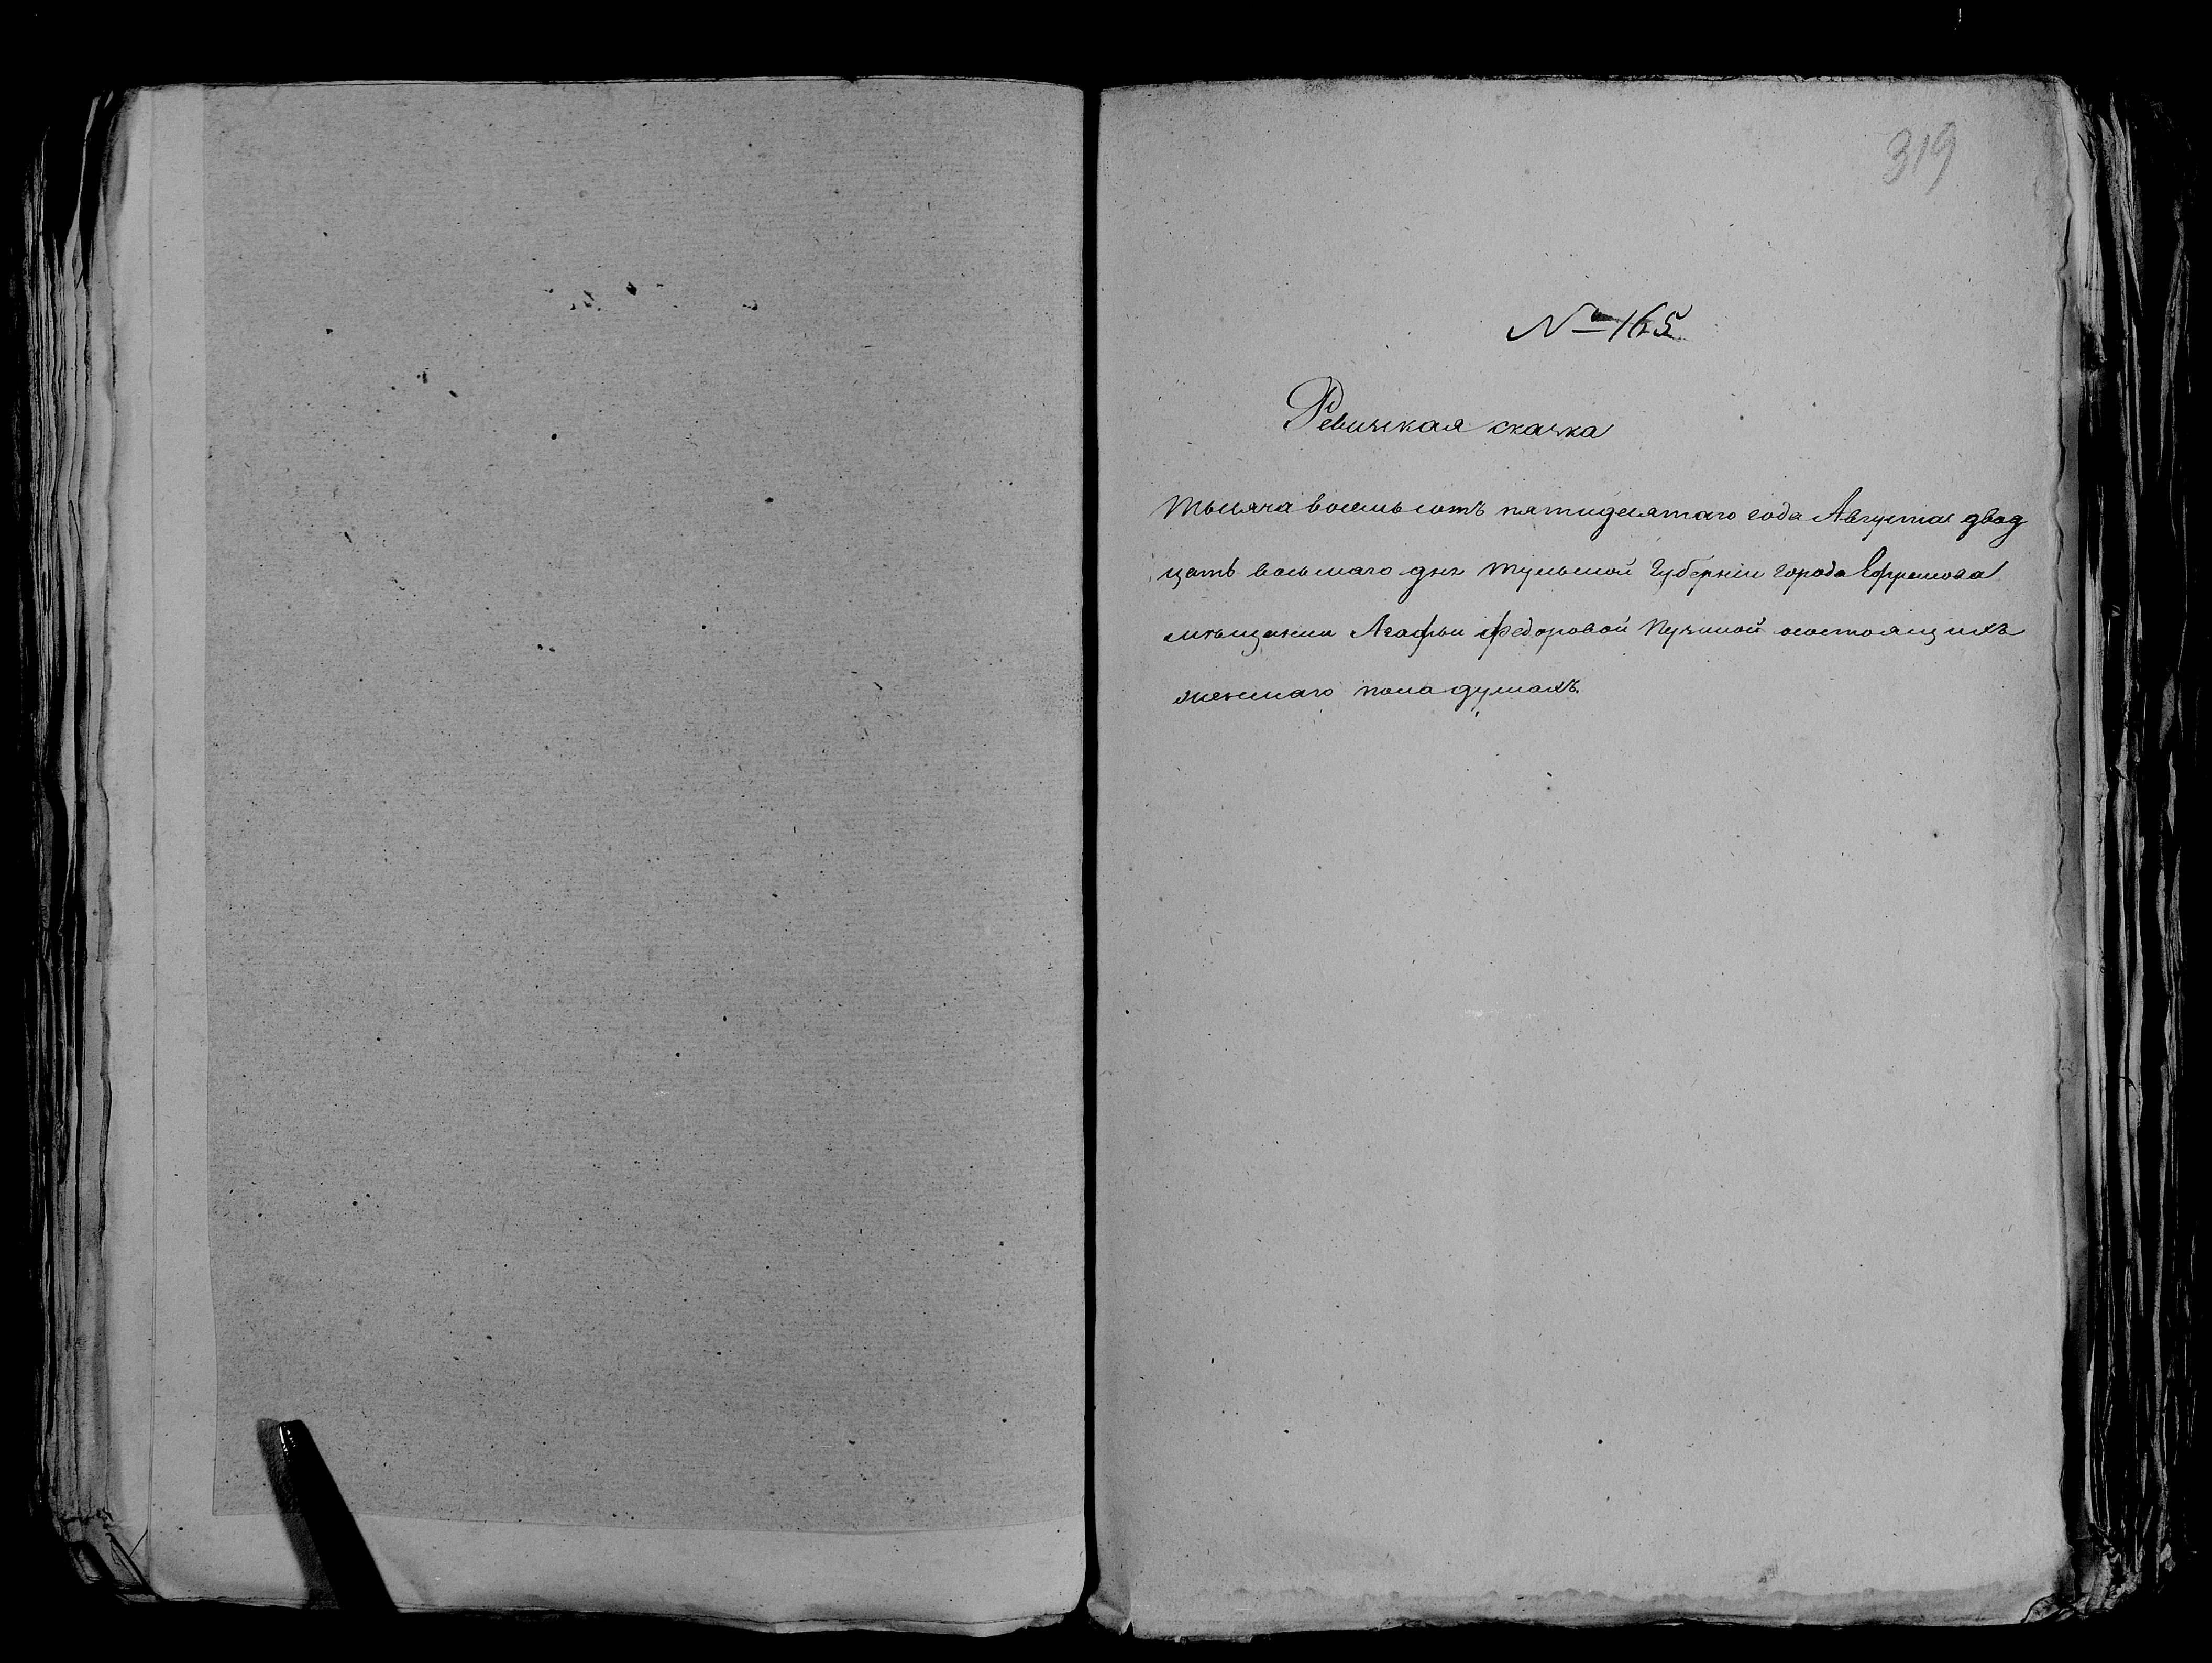 319
№ 165
Ревизская сказка
тысяча восемь сотъ пятидесятаго года Августа двад
цать восьмаго дня Тульской Губернiи города Ефремова
мѣщанки Агафьи Федоровой состоящихъ
женскаго пола душахъ.